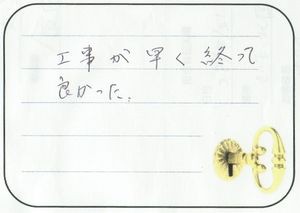 工事が早く終って
良かった。